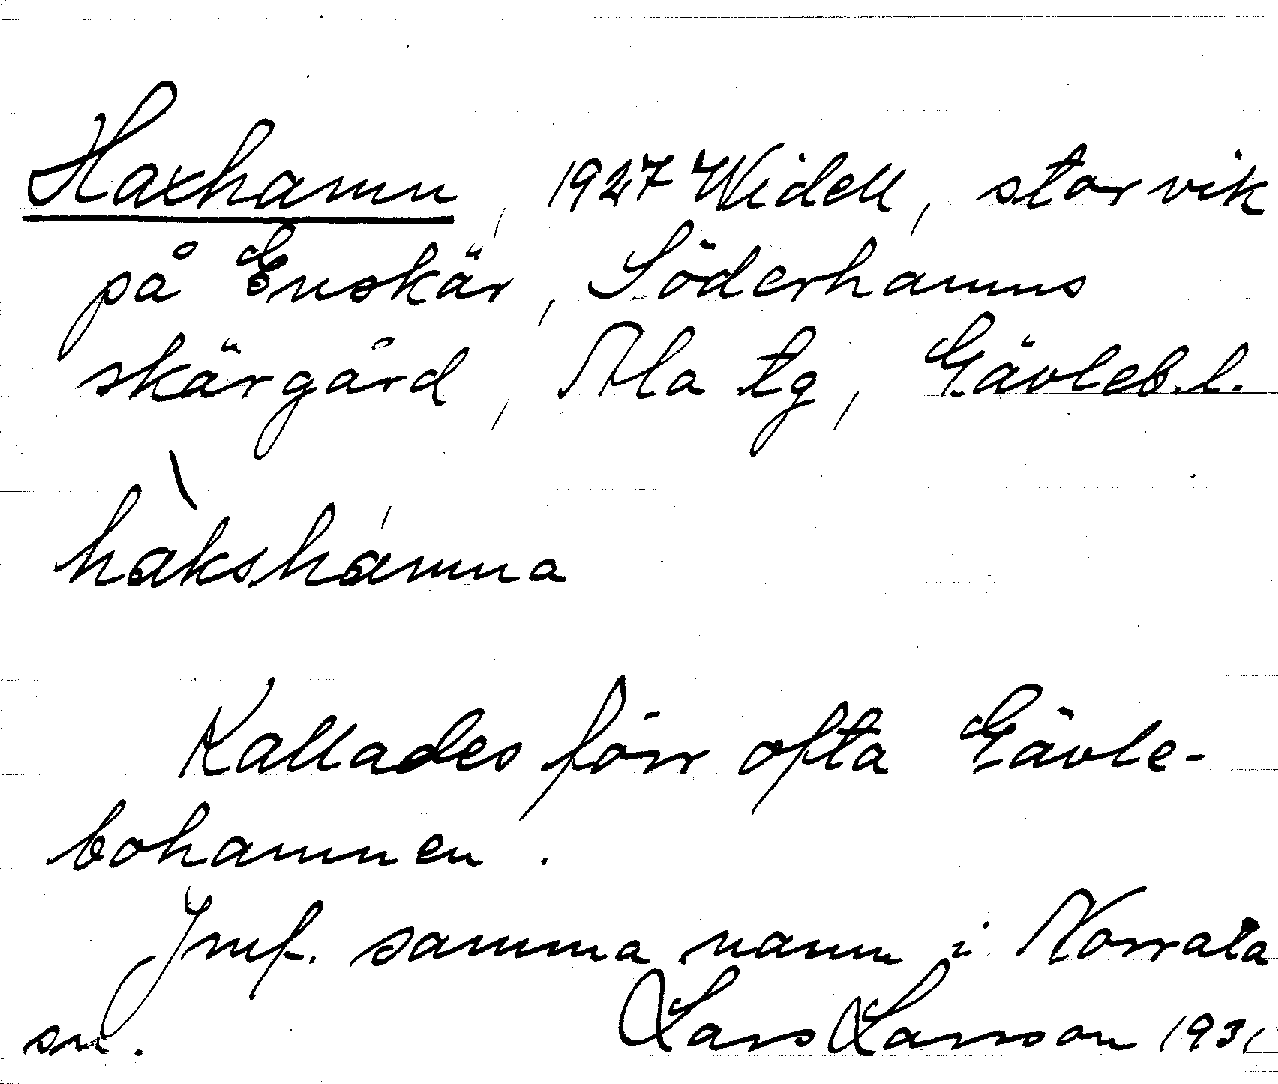 Haxhamn, 1927 Widell, stor vik
på Enskär, Söderhamns
skärgård, Ala tg, Gävleb.l.
hàkshámna
Kallades förr ofta Gävle-
bohamnen.
Jmf. samma namn i Norrala
sn. Lars Larsson 1931